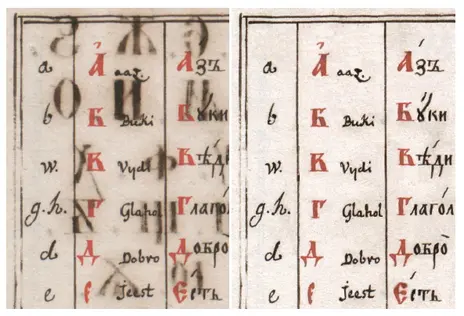 a А́ aaz. А́зъ
b Б Buki Бꙋ́ки
w. В Vydi Вѣ́ди
g.h. Г Glahol Глаго́л
d Д Dobro Добро̀
e Е Jeest Е́сть
a А́ aaz. А́зъ
b Б Buki Бꙋ́ки
w. В Vydi Вѣ́ди
g.h. Г Glahol Глаго́л
d Д Dobro Добро̀
e Е Jeest Е́сть